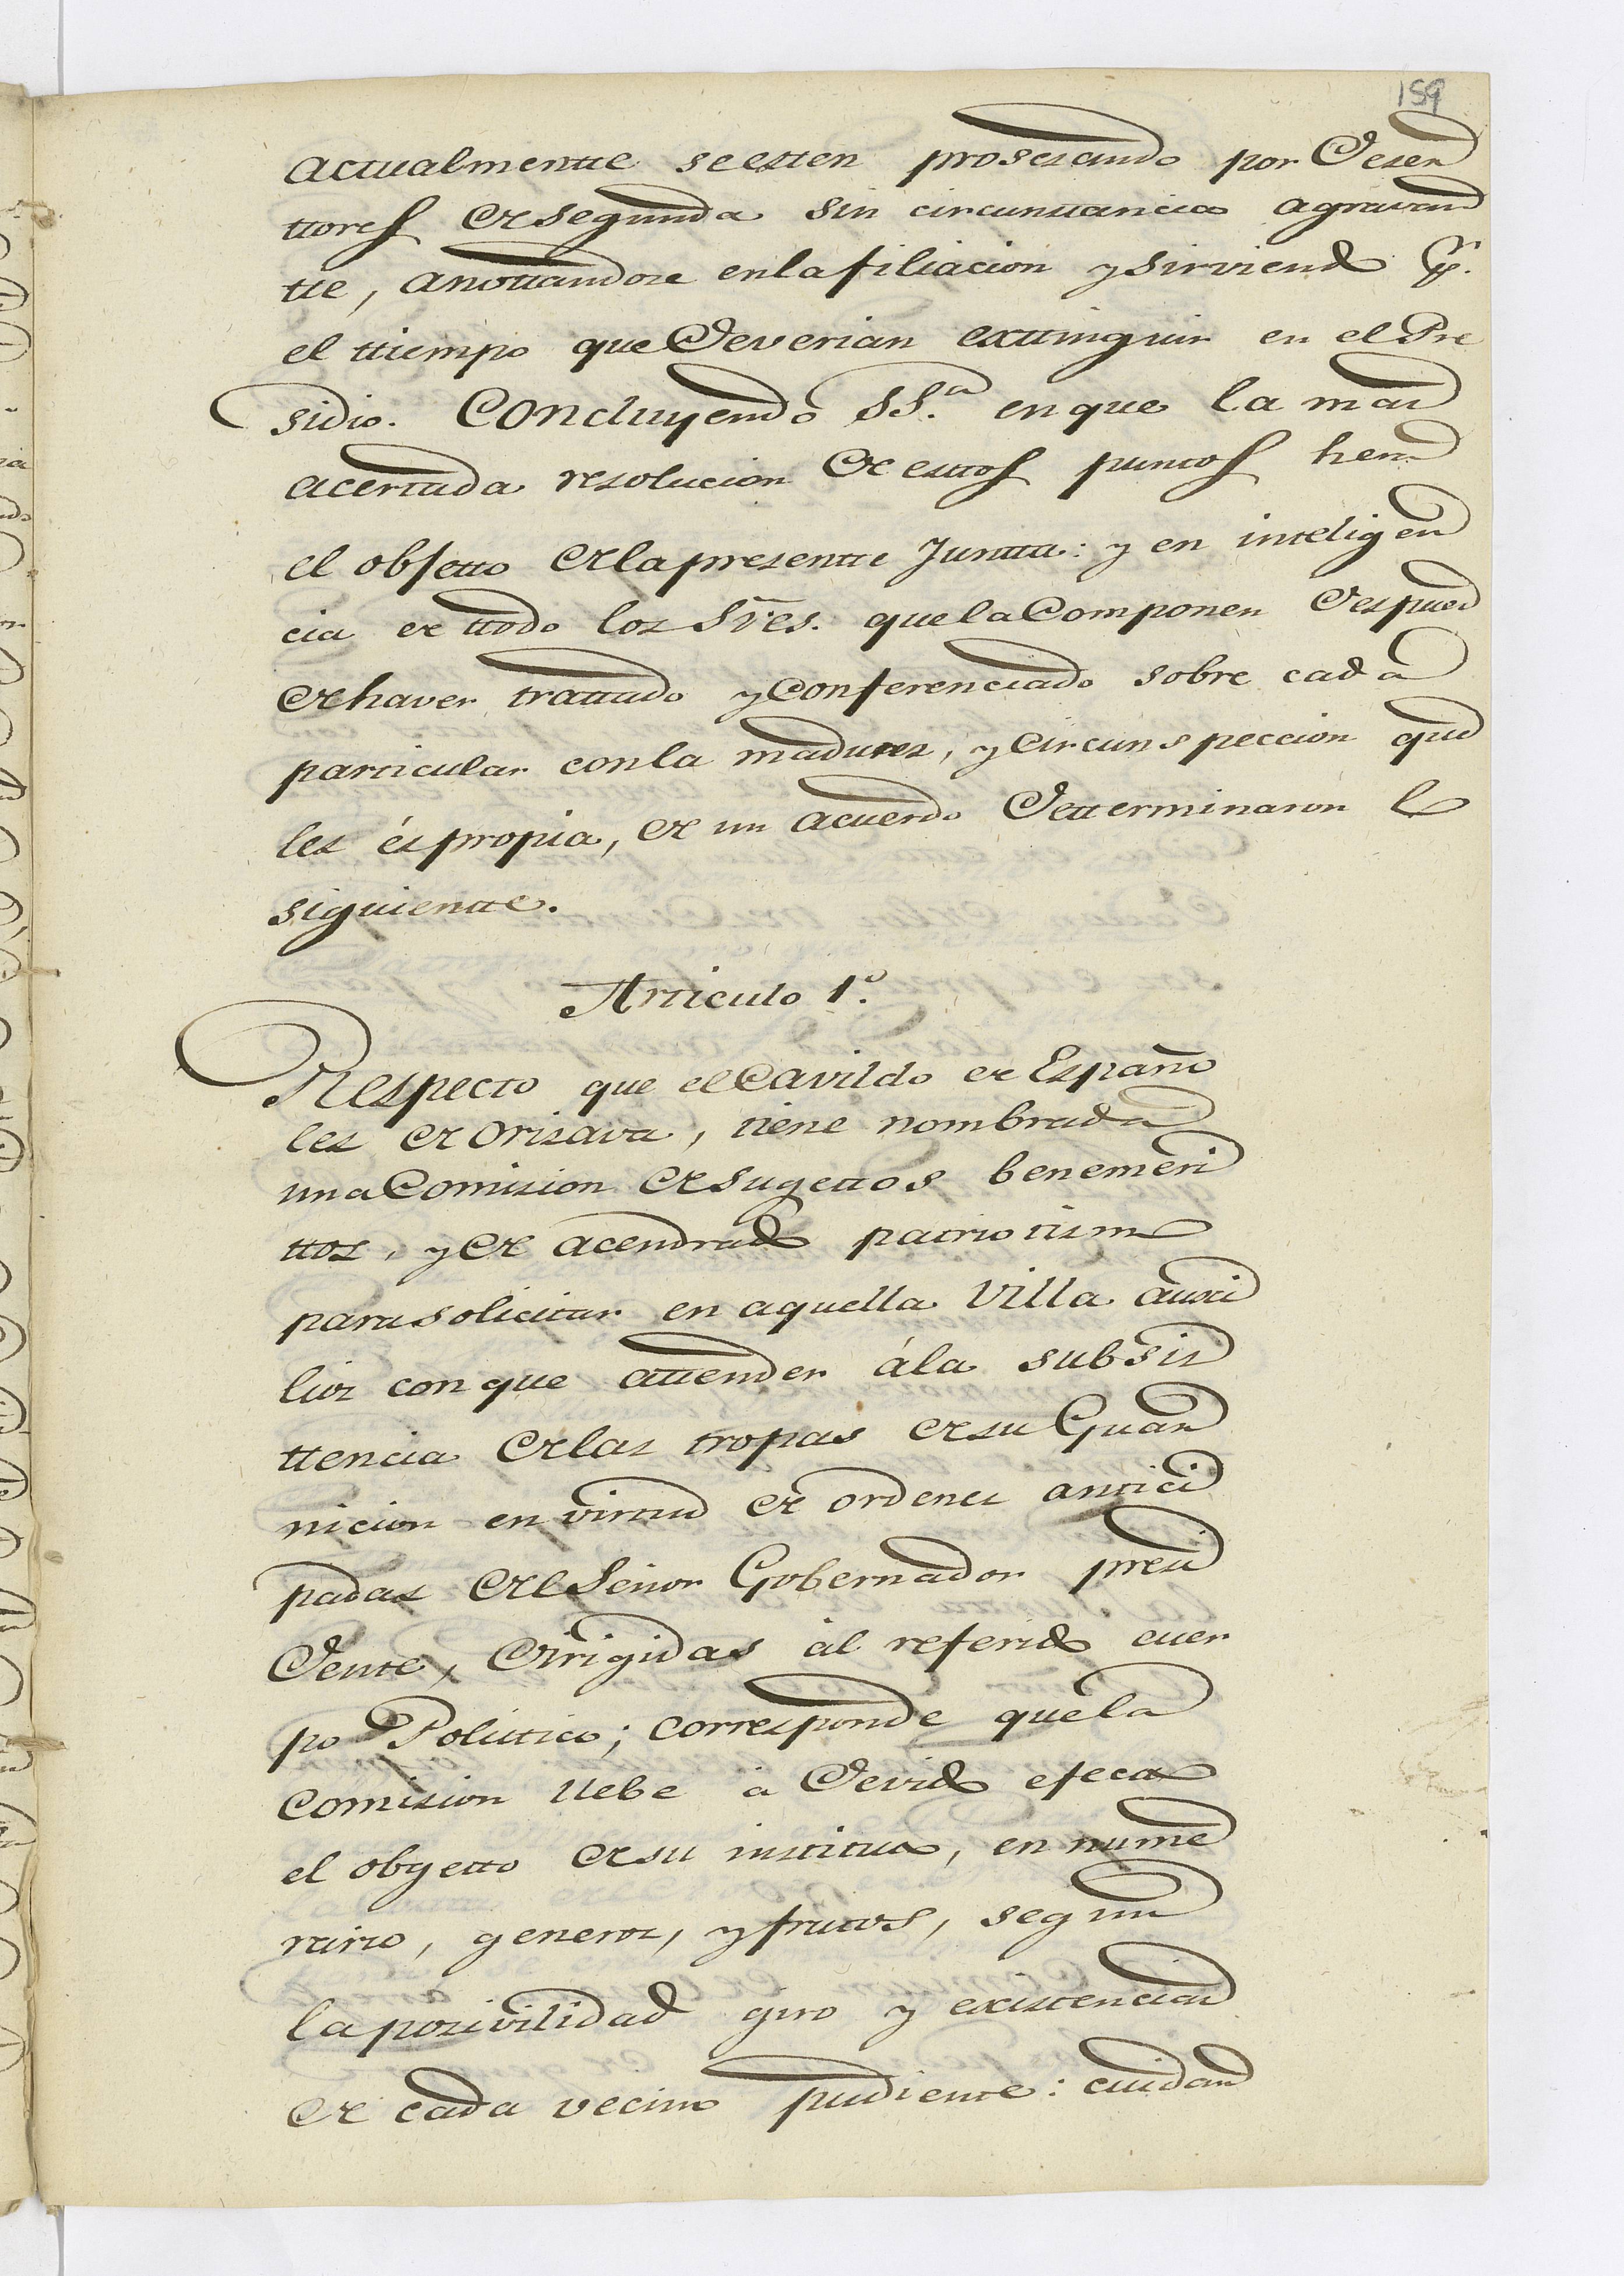 159
actualmentte se estten prosesando por Deser
ttores de segunda sin circunsttancia agravan
tte, anottandose en la filiacion y sirviendo pr.
el ttiempo que Deverian exttinguir en el Pre
sidio. Concluyendo SSa. en que la mas
acertada resolucion de esttos puntos hera
el objetto de la presentte Juntta: y en inteligen
cia de ttodo los Sres. que la Componen Despues
de haver trattado y Conferenciado sobre cada
particular con la madures, y Circunspeccion que
les és propia, de un acuerdo Detterminaron lo
siguientte.
Articulo 1º.
Respecto que el Cavildo de Españo
les de Orisava, tiene nombrada
una Comision de sugettos benemeri
ttos, y de acendrado patriotismo
para solicitar en aquella Villa auxi
lios con que attender ála subsis
ttencia de las tropas de su Guar
nicion en virtud de ordenes antici
padas del Señor Gobernador presi
Dente, Dirigidas al referido cuer
po Politico; corresponde que la
Comision llebe á Devido efecto
el obgetto de su institutto, en nume
rario, generos, y frutos, segun
la posivilidad giro y existencias
de cada vecino pudiente: cuidan